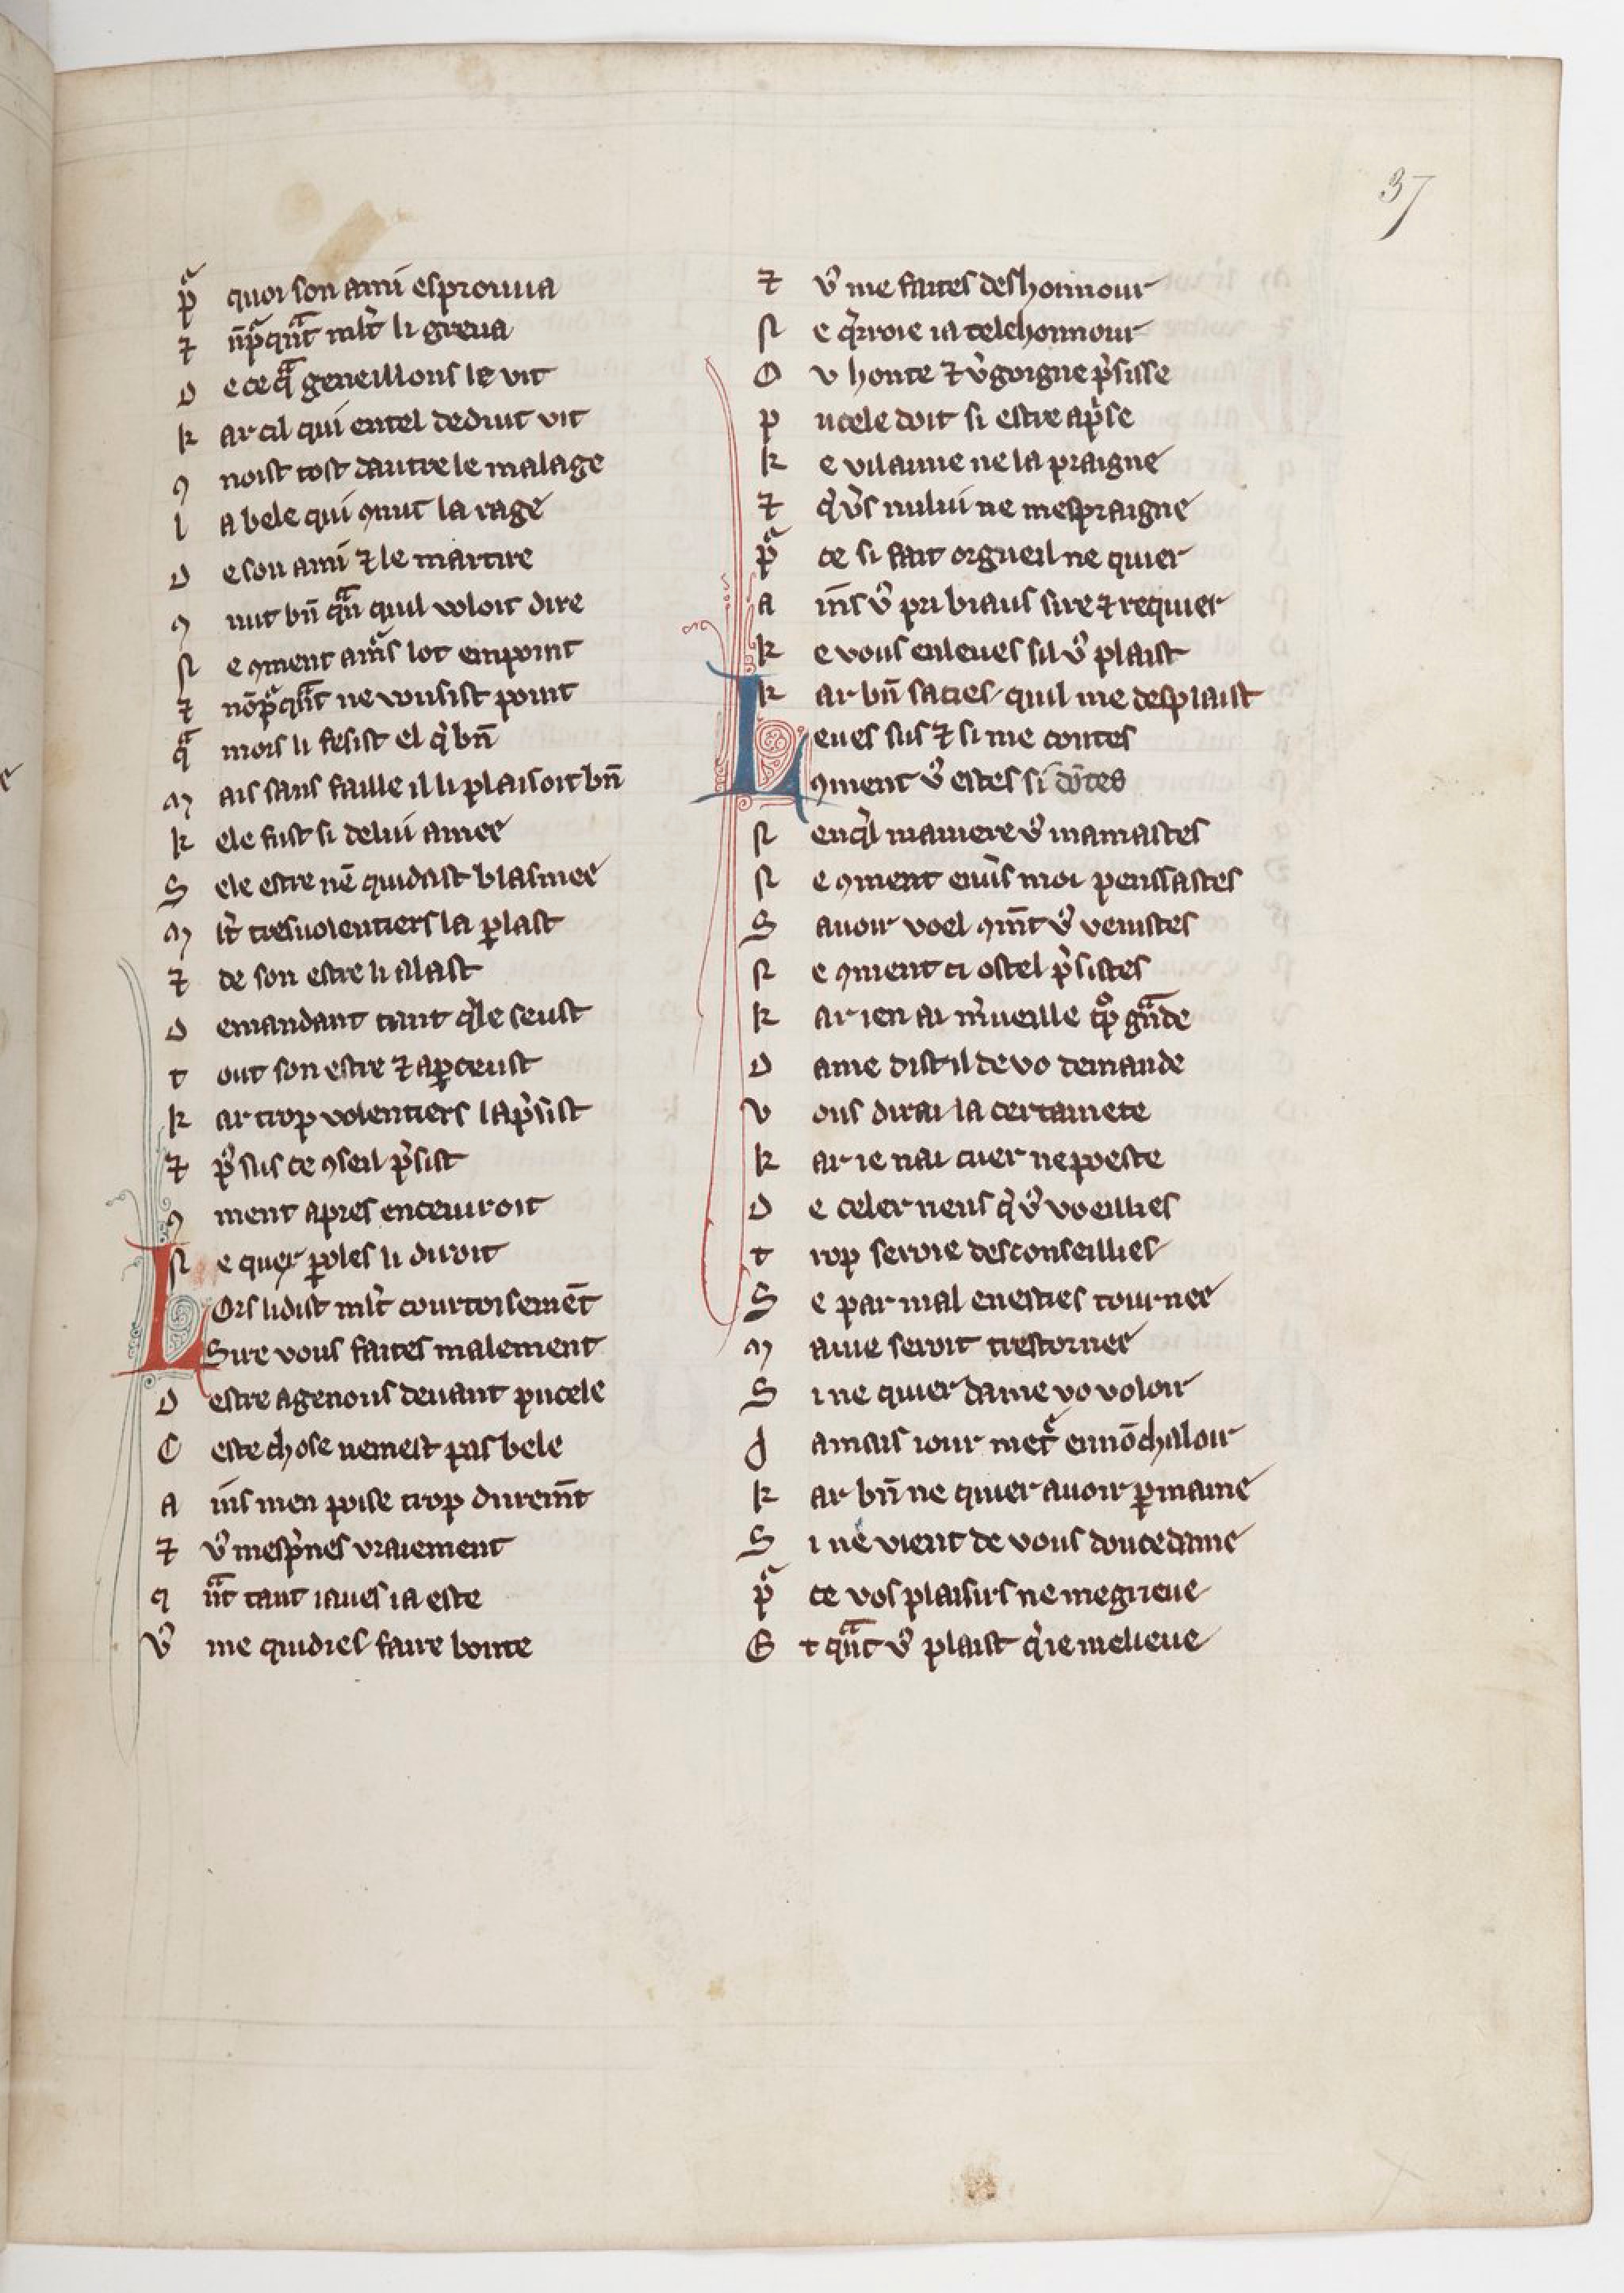 37
pͣ quoi son ami esprouua
⁊ nõpͣqͣnt ml̃t li greua
D e ce qͣ geneillons le vit
k ar cil qui en tel deduit vit
ꝯ noist tost dautre le malage
l a bele qui ꝯnut la rage
D e son ami ⁊ le martire
ꝯ nut bn̄ qͣn quil voloit dire
N e ꝯment amͦs lot enpoint
⁊ nõpͣqͣnt ne vousist point
qͣ mors li fesist el q̇ bn̄
M ais sans faille il li plaisoit bn̄
k ele fust si de lui amee
S ele estre nẽ quidast blasmee
M lt̃ tres uolentiers la ꝑlast
⁊ de son estre li alast
D emandant tant q̇le seust
t out son estre ⁊ aꝑceust
k ar trop volentiers lap̾sist
⁊ pͥ sus ce ꝯseil p̾sist
ꝯ ment apres enceuuroit
N e quex ꝑoles li diroit
L Ors li dist ml̃t courtoisemẽt
Sire vous faites malement
D estre agenous deuant pucele
C este chose nemest pas bele
A ins men poise trop duremt̃
⁊ vͦ mesp̾nes vraiement
q ͣnt tant i aues ia este
Vͦ me quidies faire bonte
⁊ vͦ me faites deshonnour
N e q̾rroie ia tele honnour
O v honte ⁊ v̾goigne p̾sisse
p ucele doit si estre ap̾se
k e vilanie ne la praigne
⁊ q̇ v̾s nului ne mespraigne
pͣ ce si fait orgueil ne quier
A ins vͦ pri biaus sire ⁊ requier
k e vous en leues sil vͦ plaist
k ar bn̄ sacies quil me desplaist
L eues sus ⁊ si me contes
ꝯment vͦ estes si dõtes
N en q̇l maniere vͦ mamastes
N e ꝯment enu̾s moi penssastes
S auoir voel ꝯmt̃ vͦ venistes
N e ꝯment ci ostel p̾sistes
k ar ien ai m̾ueille tͦp gͣnde
D ame dist il de vo demande
V ous dirai la certainete
k ar ie nai cuer ne poeste
D e celer riens q̇ vͦ voeillies
t rop seroie desconseillies
S e par mal en esties tournee
M a vie seroit trestornee
S i ne quier dame vo voloir
J amais iour metͣ en nõchaloir
k ar bn̄ ne quier auoir ꝑ mame
S i ne vient de vous douce dame
pͣ ce vos plaisirs ne me grieue
E t qͣnt vͦ plaist q̇ ie me lieue